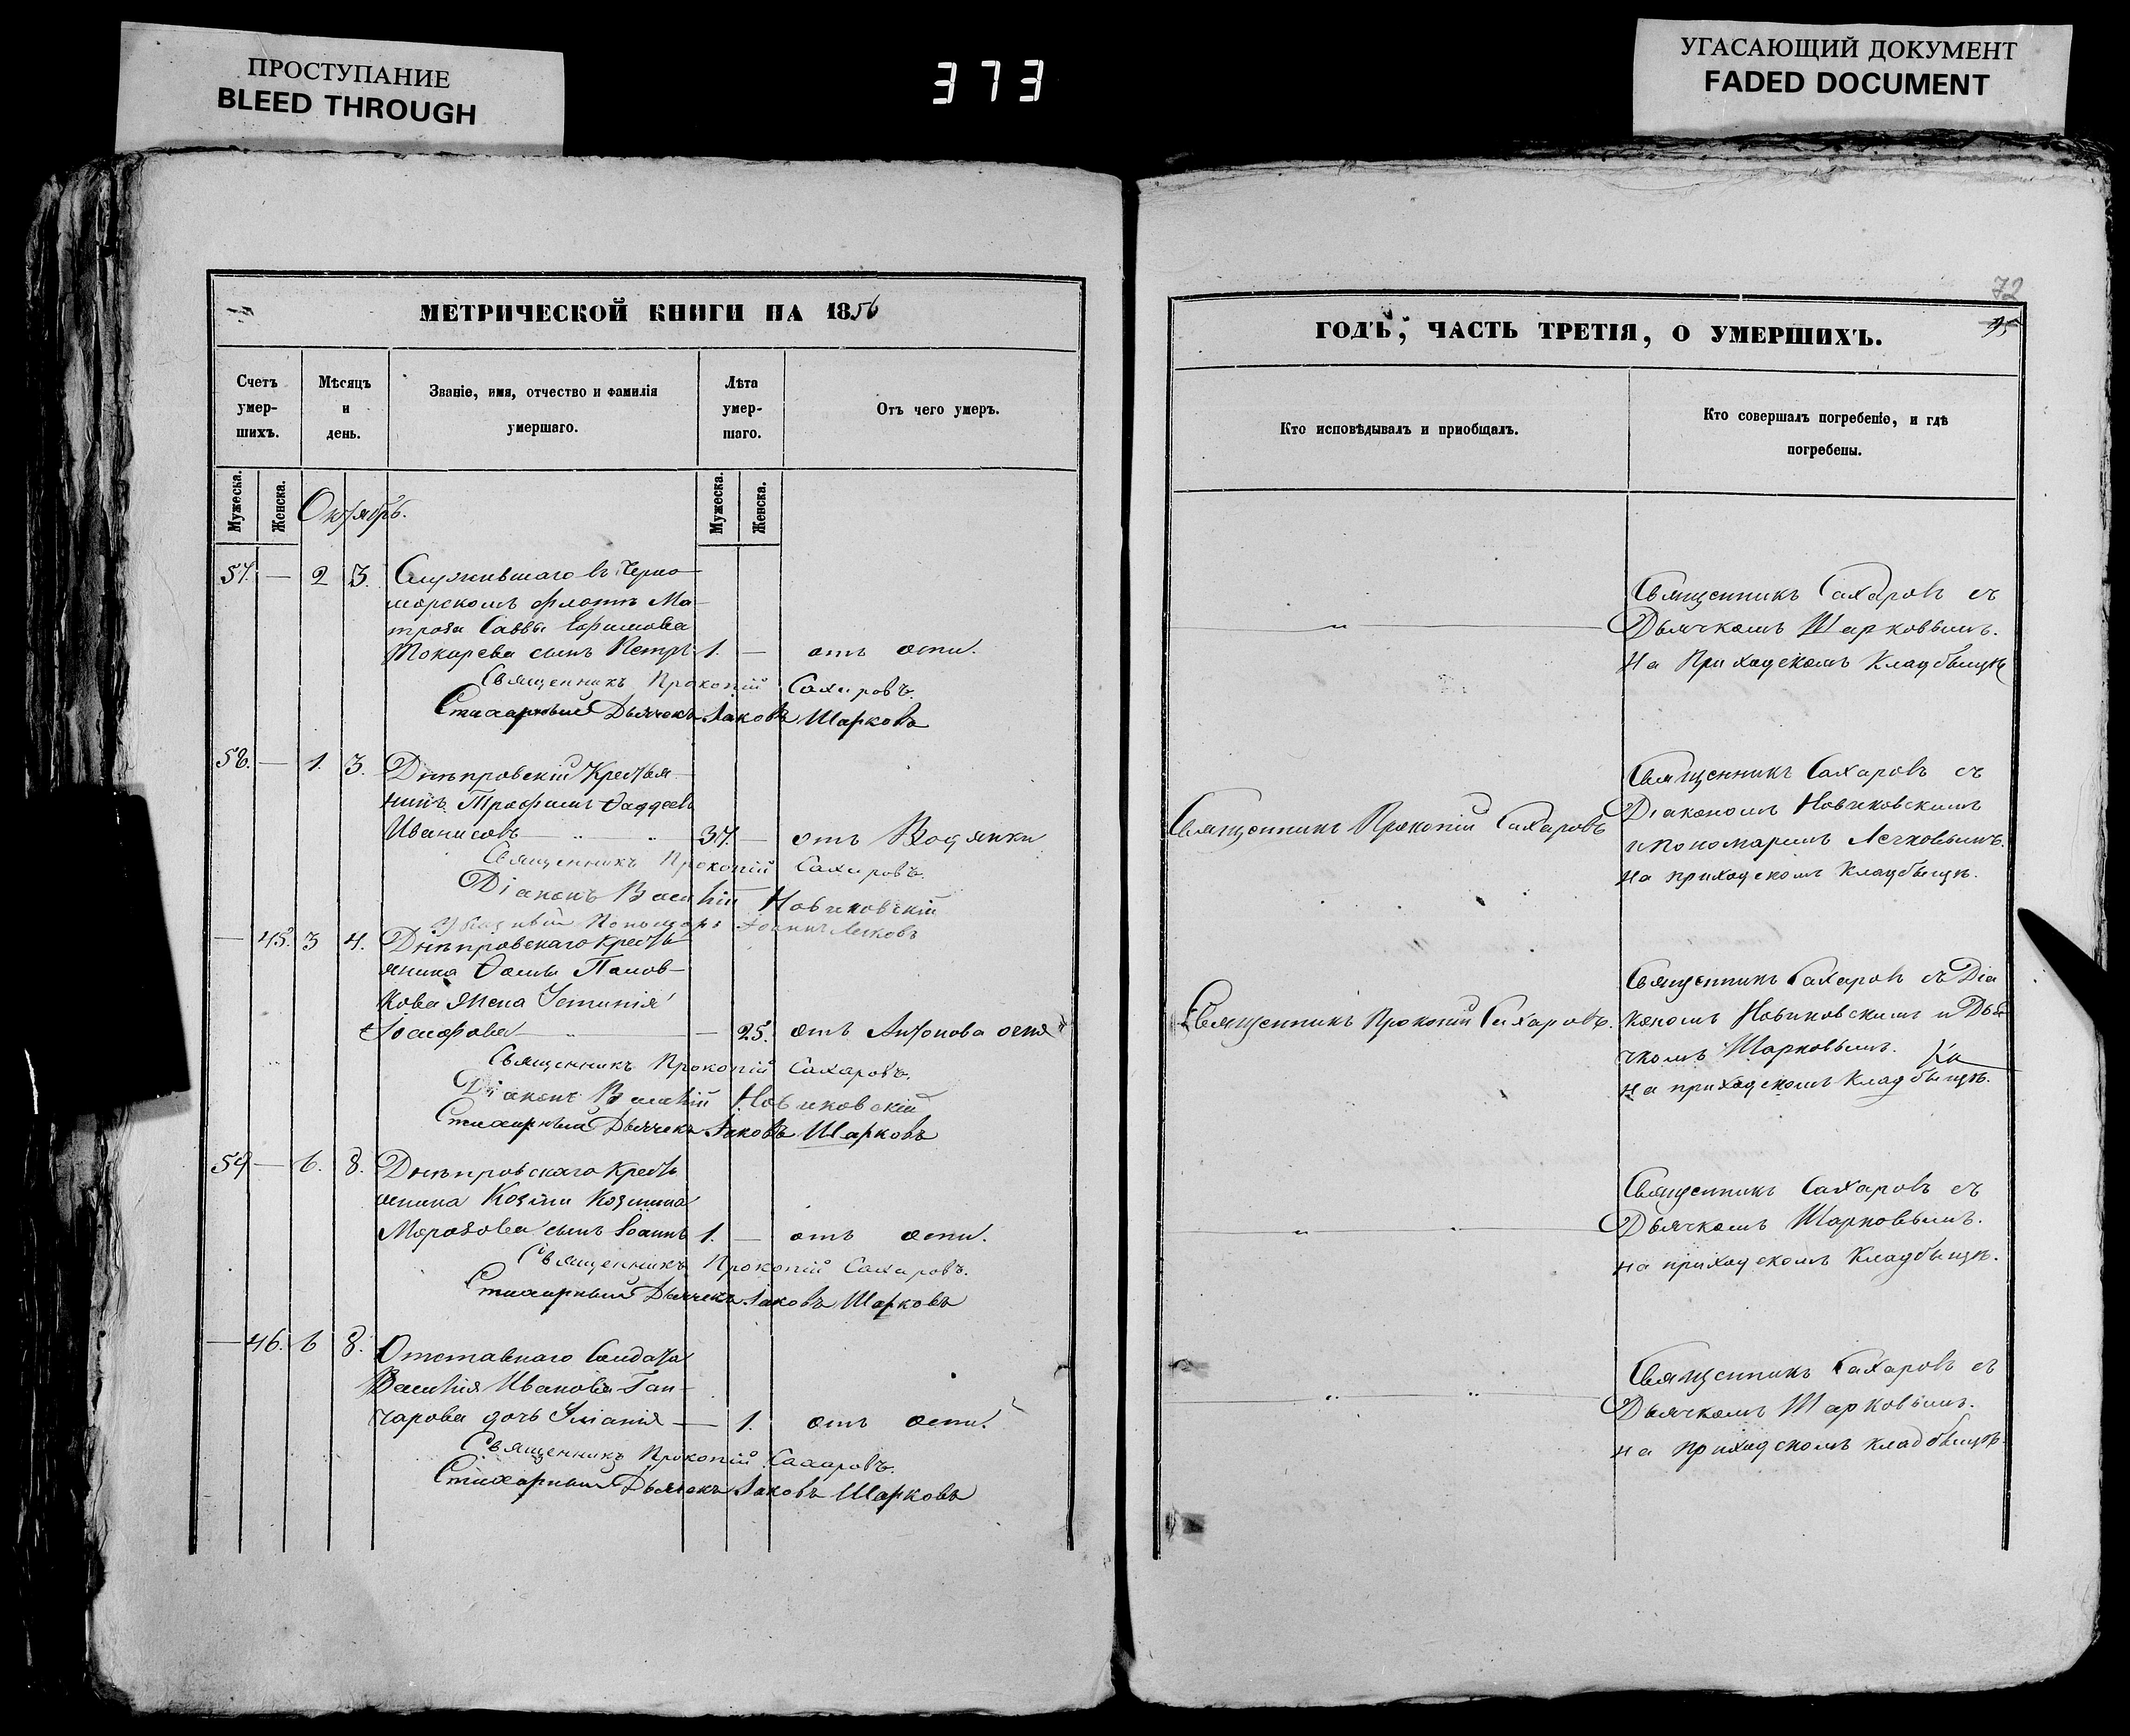 ПРОСТУПАНИЕ
BLEED THROUGH
373
УГАСАЮЩИЙ ДОКУМЕНТ
FADED DOCUMENT
МЕТРИЧЕСКОЙ КНИГИ НА 1856
Счетъ
умер-
шихъ.
Мѣсяцъ
и
день.
Званіе, имя, отчество и фамилія
умершаго.
Лѣта
умер-
шаго.
Отъ чего умеръ.
Мужеска.
Женска.
Октябрь.
Мужеска.
Женска.
57. — 2 3. Служившаго въ Черно
морскомъ флотѣ Ма-
троза Саввы Ефимова
Токарева сынъ Петръ 1. — отъ оспы.
Священникъ Прокопій Сахаровъ.
Стихарный Дьячекъ Іаковъ Шарковъ
58. — 1. 3. Днѣпровскій Крестья
нинъ Трофимъ Ѳаддеевъ
Иванисовъ 37. — отъ Водянки
Священникъ Прокопій Сахаровъ.
Діаконъ Василій Новиковскій
Пономарь Іоаннъ
— 45. 3 4. Днѣпровскаго кресть
янина Ѳомы Попов-
кова жена Устинія
Іосифова — 25. отъ Антонова огня
Священникъ Прокопій Сахаровъ.
Діаконъ Василій Новиковскій
Стихарный Дьячекъ Іаковъ Шарковъ
59 — 6. 8. Днѣпровскаго кресть
янина Козмы Козмина
Морозова сынъ Іоаннъ 1. — отъ оспы.
Священникъ Прокопій Сахаровъ.
Стихарный Дьячекъ Іаковъ Шарковъ
— 46. 6 8. Отставнаго Солдата
Василія Иванова Ган-
чарова дочь — 1. отъ оспы.
Священникъ Прокопій Сахаровъ.
Стихарный Дьячекъ Іаковъ Шарковъ
72
ГОДЪ, ЧАСТЬ ТРЕТІЯ, О УМЕРШИХЪ.
Кто исповѣдывалъ и приобщалъ.
Кто совершалъ погребеніе, и гдѣ
погребены.
Священникъ Сахаровъ съ
Дьячкомъ Шарковымъ.
на Приходскомъ Кладбыщѣ
Священникъ Прокопій Сахаровъ
Священникъ Сахаровъ съ
Діакономъ Новиковскимъ
и Пономаремъ
на приходскомъ Кладбыщѣ.
Священникъ Прокопій Сахаровъ.
Священникъ Сахаровъ съ Діа
кономъ Новиковскимъ и Дья
чкомъ Шарковымъ.
на приходскомъ Кладбыщѣ.
Священникъ Сахаровъ съ
Дьячкомъ Шарковымъ.
на приходскомъ Кладбыщѣ.
Священникъ Сахаровъ съ
Дьячкомъ Шарковымъ.
на приходскомъ кладбыщѣ.